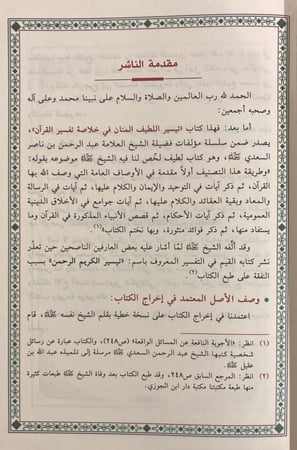 مقدمة الناشر
الحمد لله رب العالمين والصلاة والسلام على نبينا محمد وعلى آله
وصحبه أجمعين:
أما بعد: فهذا كتاب «تيسير اللطيف المنان في خلاصة تفسير القرآن»،
يصدر ضمن سلسلة مؤلفات فضيلة الشيخ العلامة عبد الرحمن بن ناصر
السعدي ﷺ، وهو كتاب لطيف لخّص لنا فيه الشيخ ﷺ موضوعه بقوله:
«وطريقة هذا التصنيف أولاً مقدمة في الأوصاف العامة التي وصف الله بها
القرآن، ثم ذكر آيات في التوحيد والإيمان والكلام عليها، ثم آيات في الرسالة
والمعاد وبقية العقائد والكلام عليها، ثم آيات جوامع في الأخلاق الدينية
العمومية، ثم ذكر آيات الأحكام، ثم قصص الأنبياء المذكورة في القرآن وما
يستفاد منها، ثم ذكر فوائد منثورة، وبها نختم الكتاب»(١).
وقد ألّفه الشيخ لمّا أشار عليه بعض العارفين الناصحين حين تعذّر
نشر كتابه القيم في التفسير المعروف باسم: «تيسير الكريم الرحمن» بسبب
النفقة على طبع الكتاب(٢).
● وصف الأصل المعتمد في إخراج الكتاب:
اعتمدنا في إخراج الكتاب على نسخة خطية بقلم الشيخ نفسه، قام
(١) انظر: «الأجوبة النافعة عن المسائل الواقعة» (ص٢٤٨)، والكتاب عبارة عن رسائل
شخصية كتبها الشيخ عبد الرحمن السعدي مرسلة إلى تلميذه عبد الله بن
عقيل.
(٢) انظر: المرجع السابق (ص٢٤٨)، وقد طبع الكتاب بعد وفاة الشيخ طبعات كثيرة
منها طبعة مكتبتنا مكتبة دار ابن الجوزي.